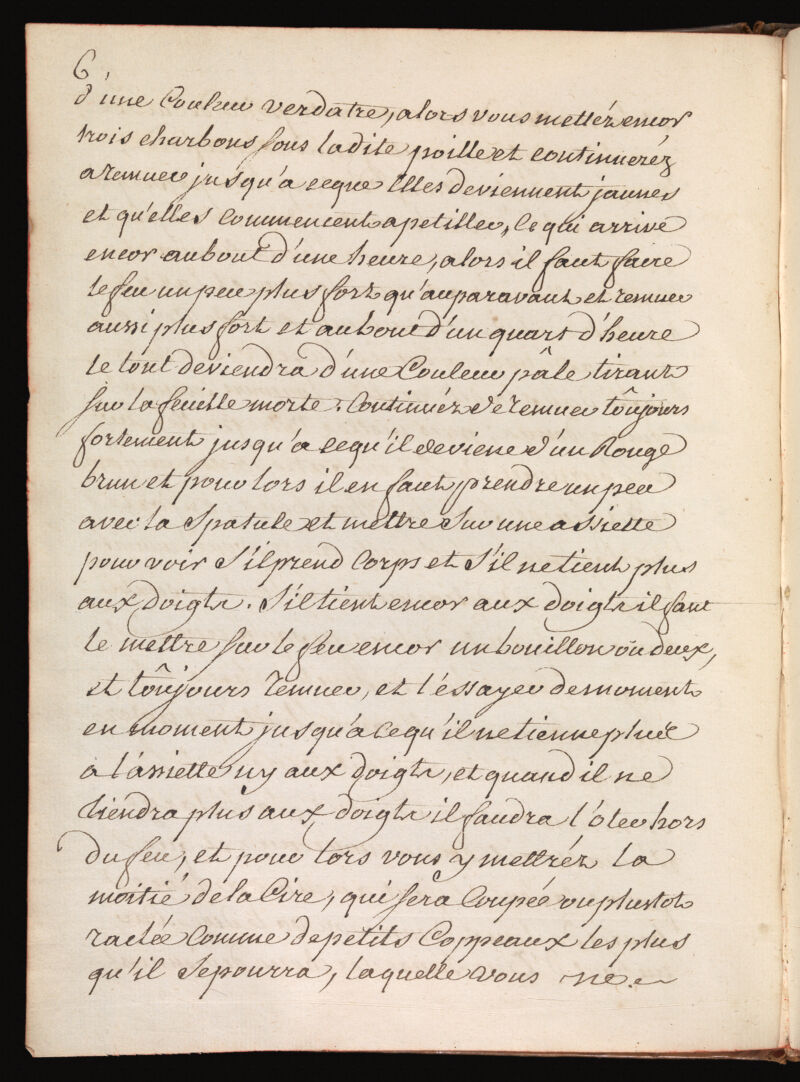 6
d'une Couleur verdatre, alors vous mettéz encor
trois charbons sous ladite poille et continueréz
a remuer jusqu'a ceque Elles deviennent jaunes
et qu'elles commencent a petiller, ce qui arrive
encor au bout d'une heure, alors il faut faire
le feu un peu plus fort qu'auparavant et remuer
aussi plus fort et au bout d'un quart d'heure
le tout deviendra d'une Couleur pâle tirant
sur la feuille morte. Continuéz de remuer toûjours
fortement jusqu'a cequ'il deviene d'un Rouge
brun et pour lors il en faut prendre un peu
avec la Spatule et mettre sur une assiette
pour voir s'il prend Corps et s'il ne tient plus
aux doigts. S'il tient encor aux doigts il faut
le mettre sur le feu encor un bouillon ou deux,
et toûjours remuer, et l'éssayer de moment
en moment jusqu'a cequ'il ne tienne plus
a l'assiette ny aux doigts, et quand il ne
tiendra plus aux doigts il faudra l'ôter hors
du feu, et pour lors vous y mettréz la
moitié de la Cire, qui sera Coupée ou plustot
raclée comme de petits Coppeaux les plus
qu'il se pourra, laquelle vous ne